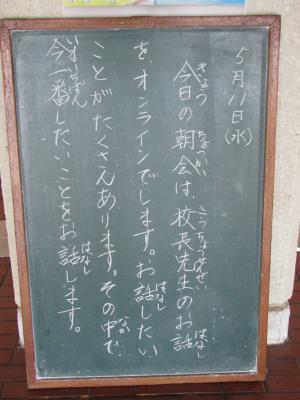 5月11日(水)
きょう ちょうかい こうちょうせんせい はなし
今日の朝会は、校長先生のお話
はなし
を、オンラインでします。お話したい
なか
ことがたくさんあります。その中で、
いまいちばん はなし
今一番したいことをお話します。